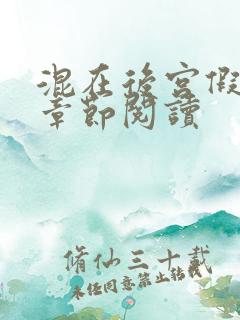 混在後宮假
章節閱讀
脩仙三十載
未经同意禁止转载